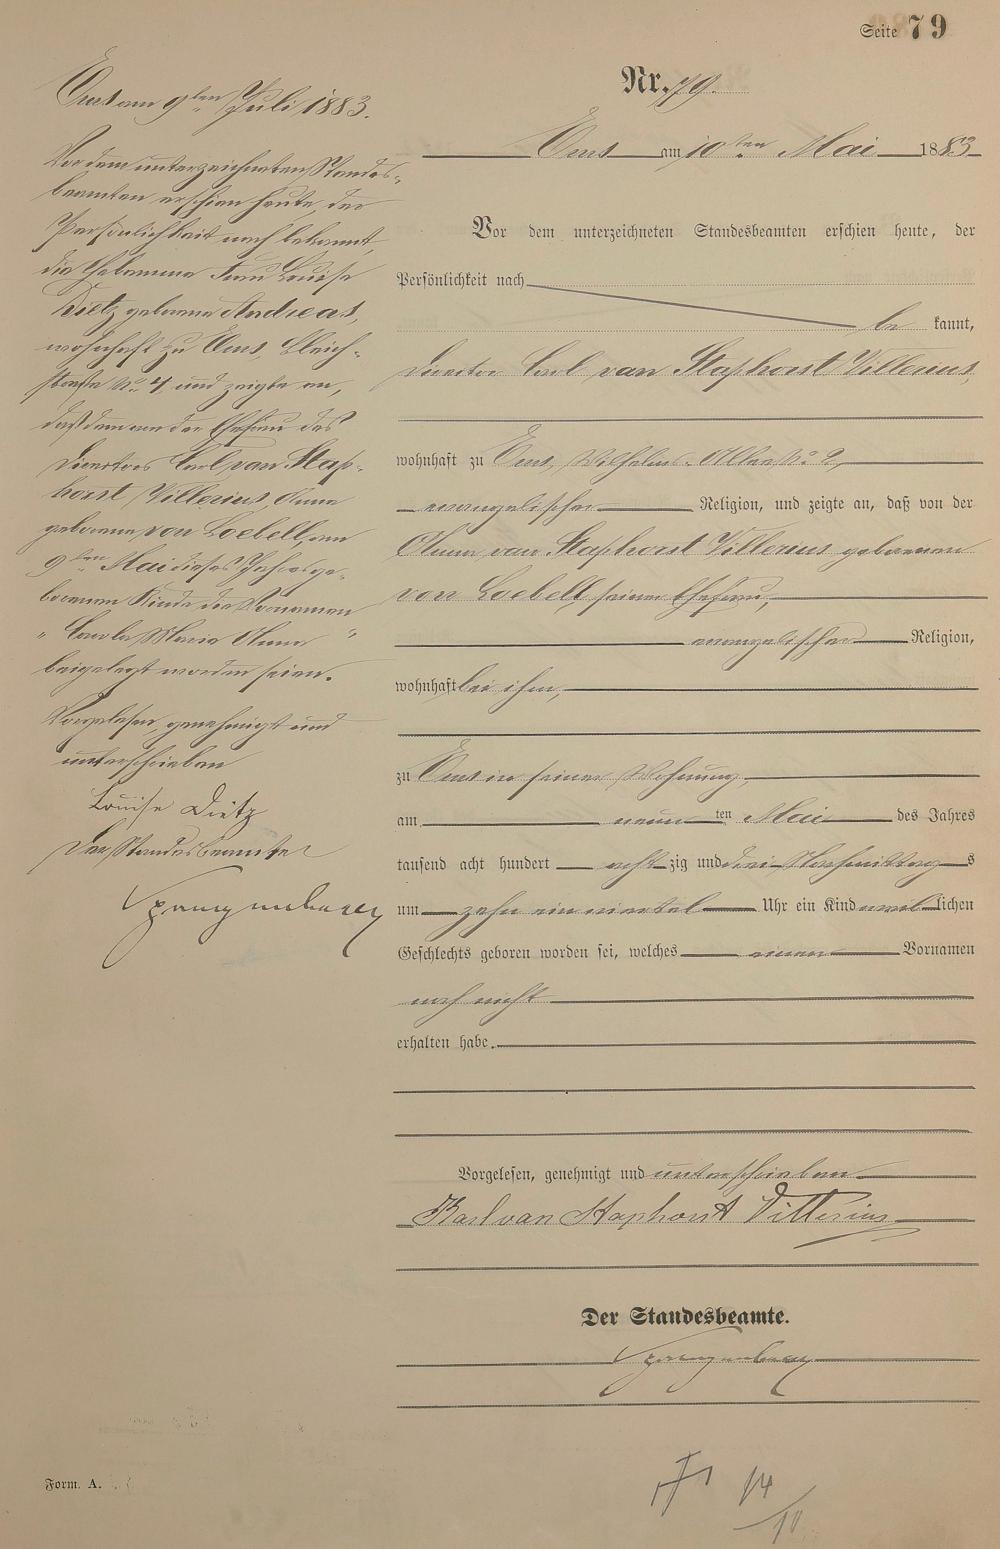 Seite 79
Nr. 79.
Ems am 10ten Mai 1883
Vor dem unterzeichneten Standesbeamten erschien heute, der
Persönlichkeit nach
be kannt,
Director Carl van Staphorst Villerius,
wohnhaft zu Ems, Wilhelms-Allee No 2,
evangelischer Religion, und zeigte an, daß von der
van Staphorst Villerius geborenen
von Loebell, seiner Ehefrau,
evangelischer Religion,
wohnhaft bei ihm,
zu Ems in seiner Wohnung,
am neun ten Mai des Jahres
tausend acht hundert acht zig und drei Nachmittag s
um zehn ein viertel Uhr ein Kind weib lichen
Geschlechts geboren worden sei, welches einen Vornamen
noch nicht
erhalten habe.
Vorgelesen, genehmigt und unterschrieben
Karl van Staphorst Villerius
Der Standesbeamte.
Spangenberg
Ems am 9ten Juli 1883.
Vor dem unterzeichneten Standes-
beamten erschien heute, der
Persönlichkeit nach bekannt,
die Hebamme Frau Louise
Dietz geborene Andreas,
wohnhaft zu Ems, Bleich-
straße No 4, und zeigte an,
daß dem von der Ehefrau des
Directors Carl van Stap-
horst Villerius,
geborene von Loebell, am
9ten Mai dieses Jahres ge-
borenen Kinde die Vornamen
" Carola Maria "
beigelegt worden seien.
Vorgelesen, genehmigt und
unterschrieben
Louise Dietz
Der Standesbeamte
Spangenberg
Form. A.
14
10